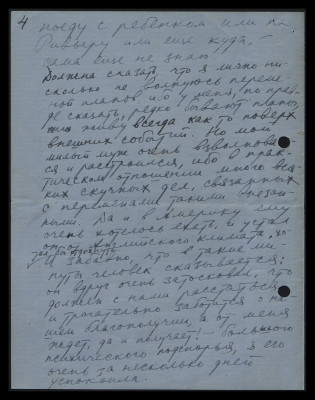 4
поеду с ребенком или на
Ривьеру или еще куда, –
сама еще не знаю
Должна сказать, что я лично ни-
сколько не волнуюсь переме-
ной планов ибо у меня, по прав-
де сказать, редко бывают планы,
живу всегда как то поверх
внешних событий. Но мой
милый муж очень взволновал-
ся и расстроился, ибо в прак-
тическом отношении много вся-
ких скучных дел, связанных
с переменами такими внезап-
ными. Да и в Америку ему
очень хотелось ехать, и устал
от Английского климата,
Забавно, что в такие ми-
нуты человек сказывается:
он вдруг очень затосковал, что
должен с нами расстаться
и трогательно заботится о на-
шем благополучии, а от меня
ждет, да и получает! – большого
психического подспорья, я его
очень за несколько дней
успокоила.